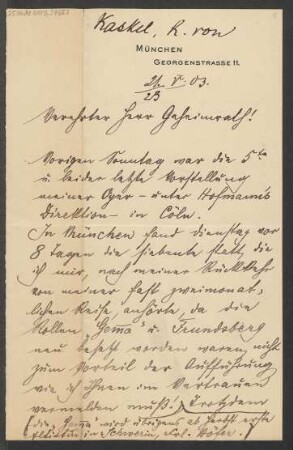 Kaskel, K. von
MÜNCHEN
GEORGENSTRASSE 11.
21/23 V. 03.
Verehrter Herr Geheimrath!
Vorigen Sonntag war die 5te
u. leider letzte Vorstellung
meiner Oper – unter Hofmann's
Direktion – in Cöln.
In München fand dienstag vor
8 Tagen die siebente statt, die
ich mir, nach meiner Rückkehr
von meiner fast zweimonat-
lichen Reise, anhörte, da die
Rollen "Gema" u. Frundsberg
neu besetzt worden waren, nicht
zum Vorteil der Aufführung
wie ich Ihnen im Vertrauen
vermelden muß! Trotzdem
(die "Gema" wird übrigens ab Herbst erste
in Schwerin,